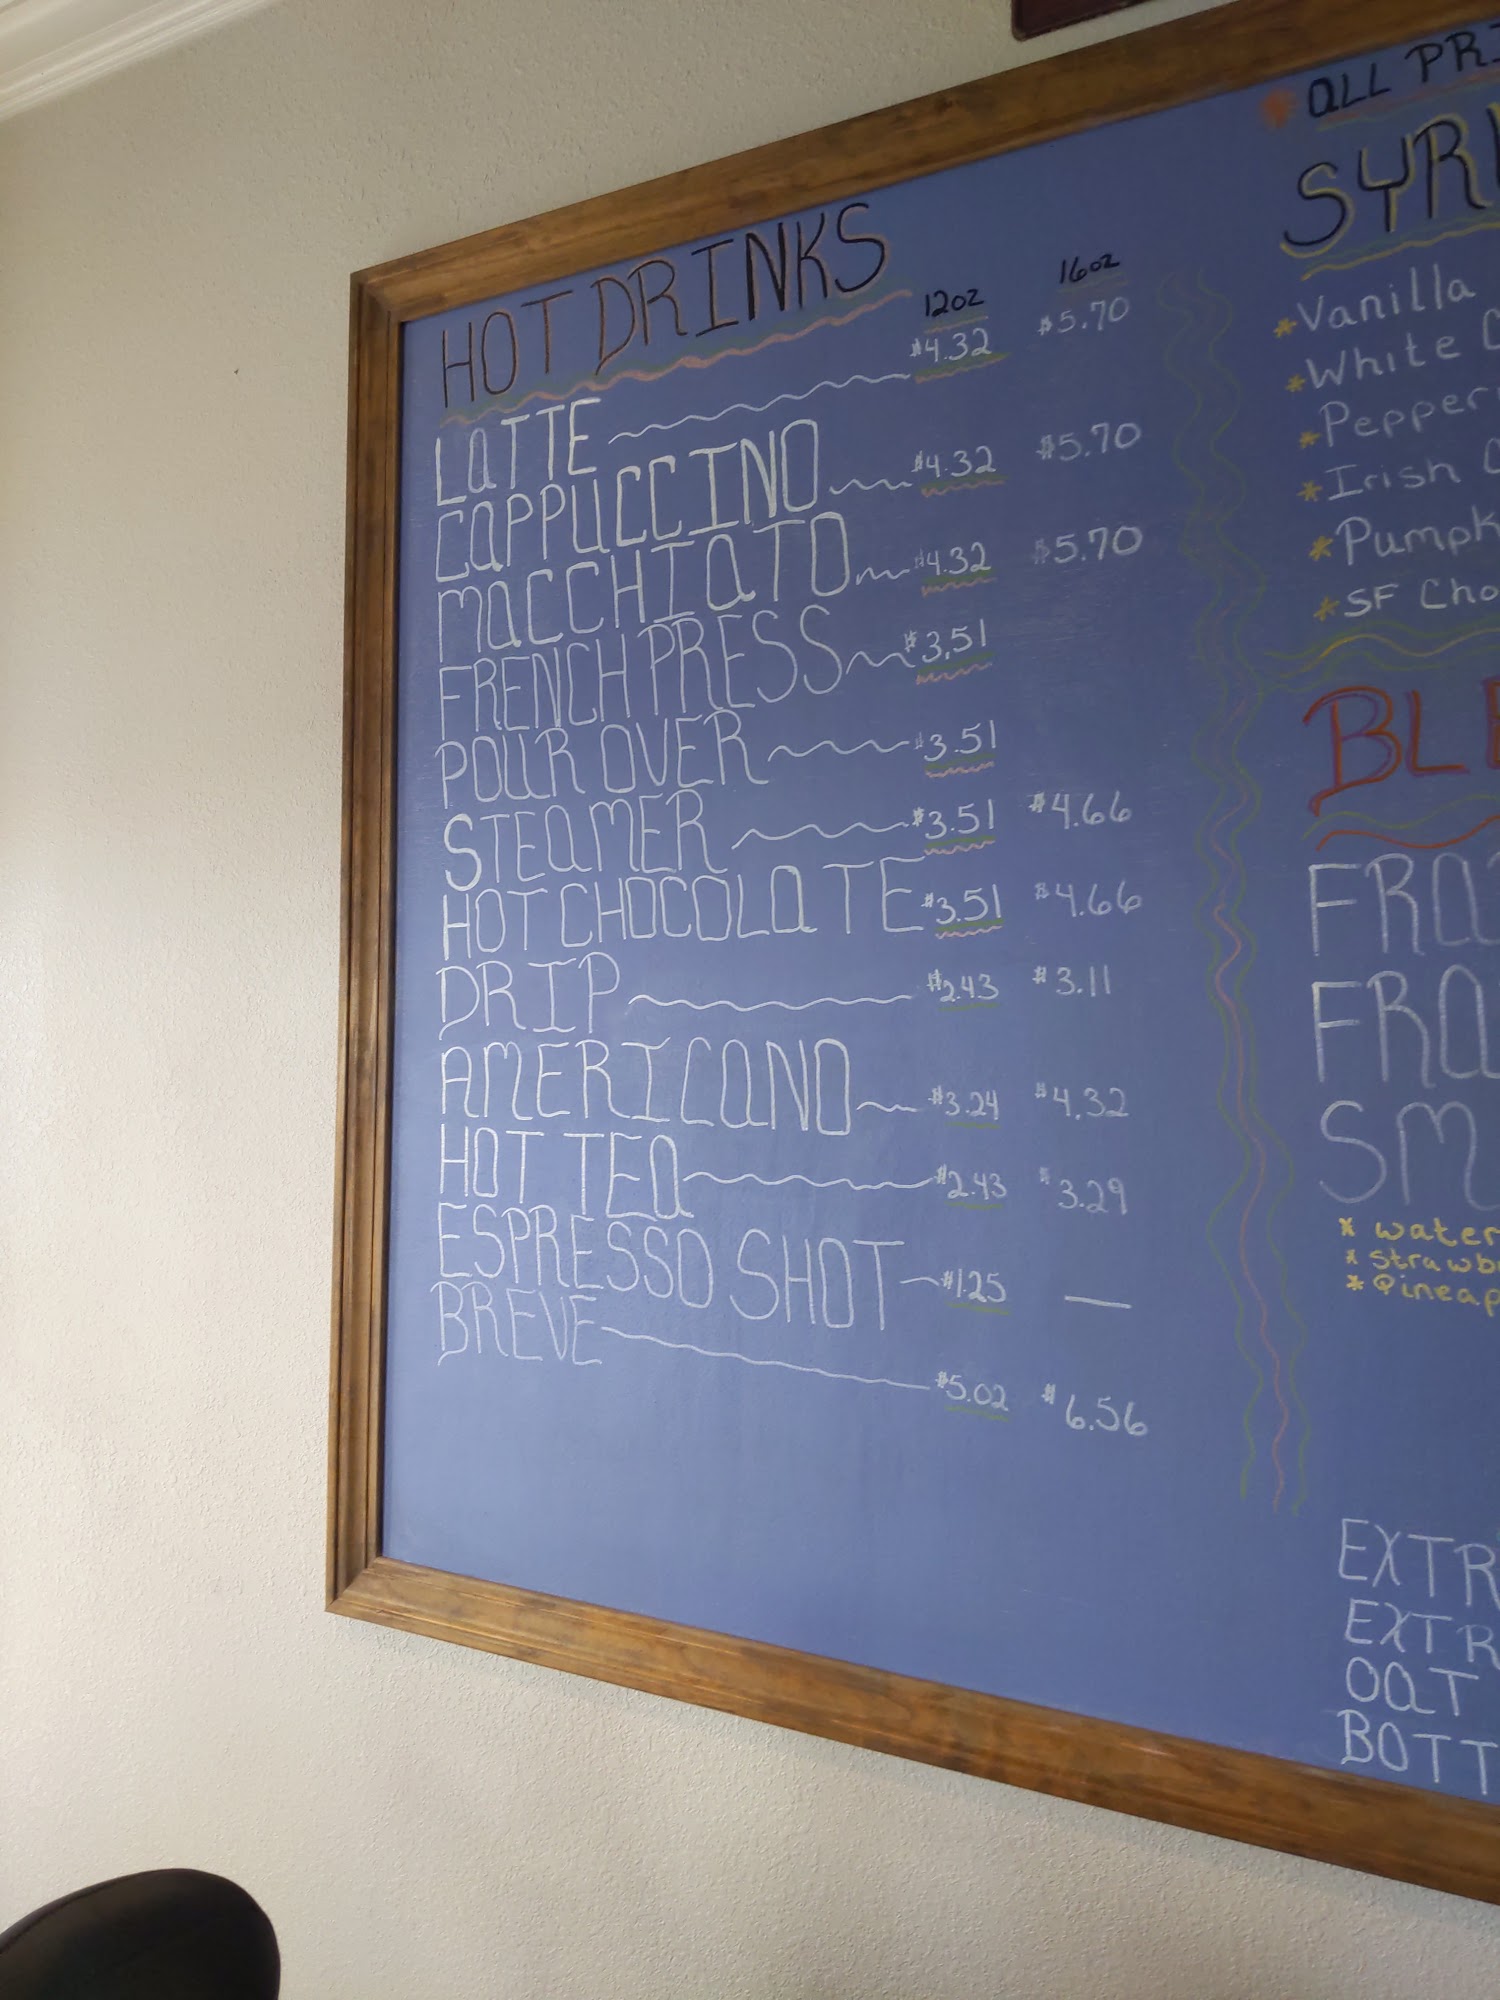 HOT DRINKS 12oz 16oz
LATTE $4.32 $5.70
CAPPUCCINO $4.32 $5.70
MACCHIATO $4.32 $5.70
FRENCH PRESS $3.51
POUR OVER $3.51
STEAMER $3.51 $4.66
HOT CHOCOLATE $3.51 $4.66
DRIP $2.43 $3.11
AMERICANO $3.24 $4.32
HOT TEA $2.43 $3.29
ESPRESSO SHOT $1.25 —
BREVE $5.02 $6.56
ALL PRI
SYRU
*Vanilla
*White C
*Pepper
*Irish C
*Pumpk
*SF Cho
BLE
FRA
FRA
SM
* water
* strawb
* Pineap
EXTR
EXTR
OAT
BOTT